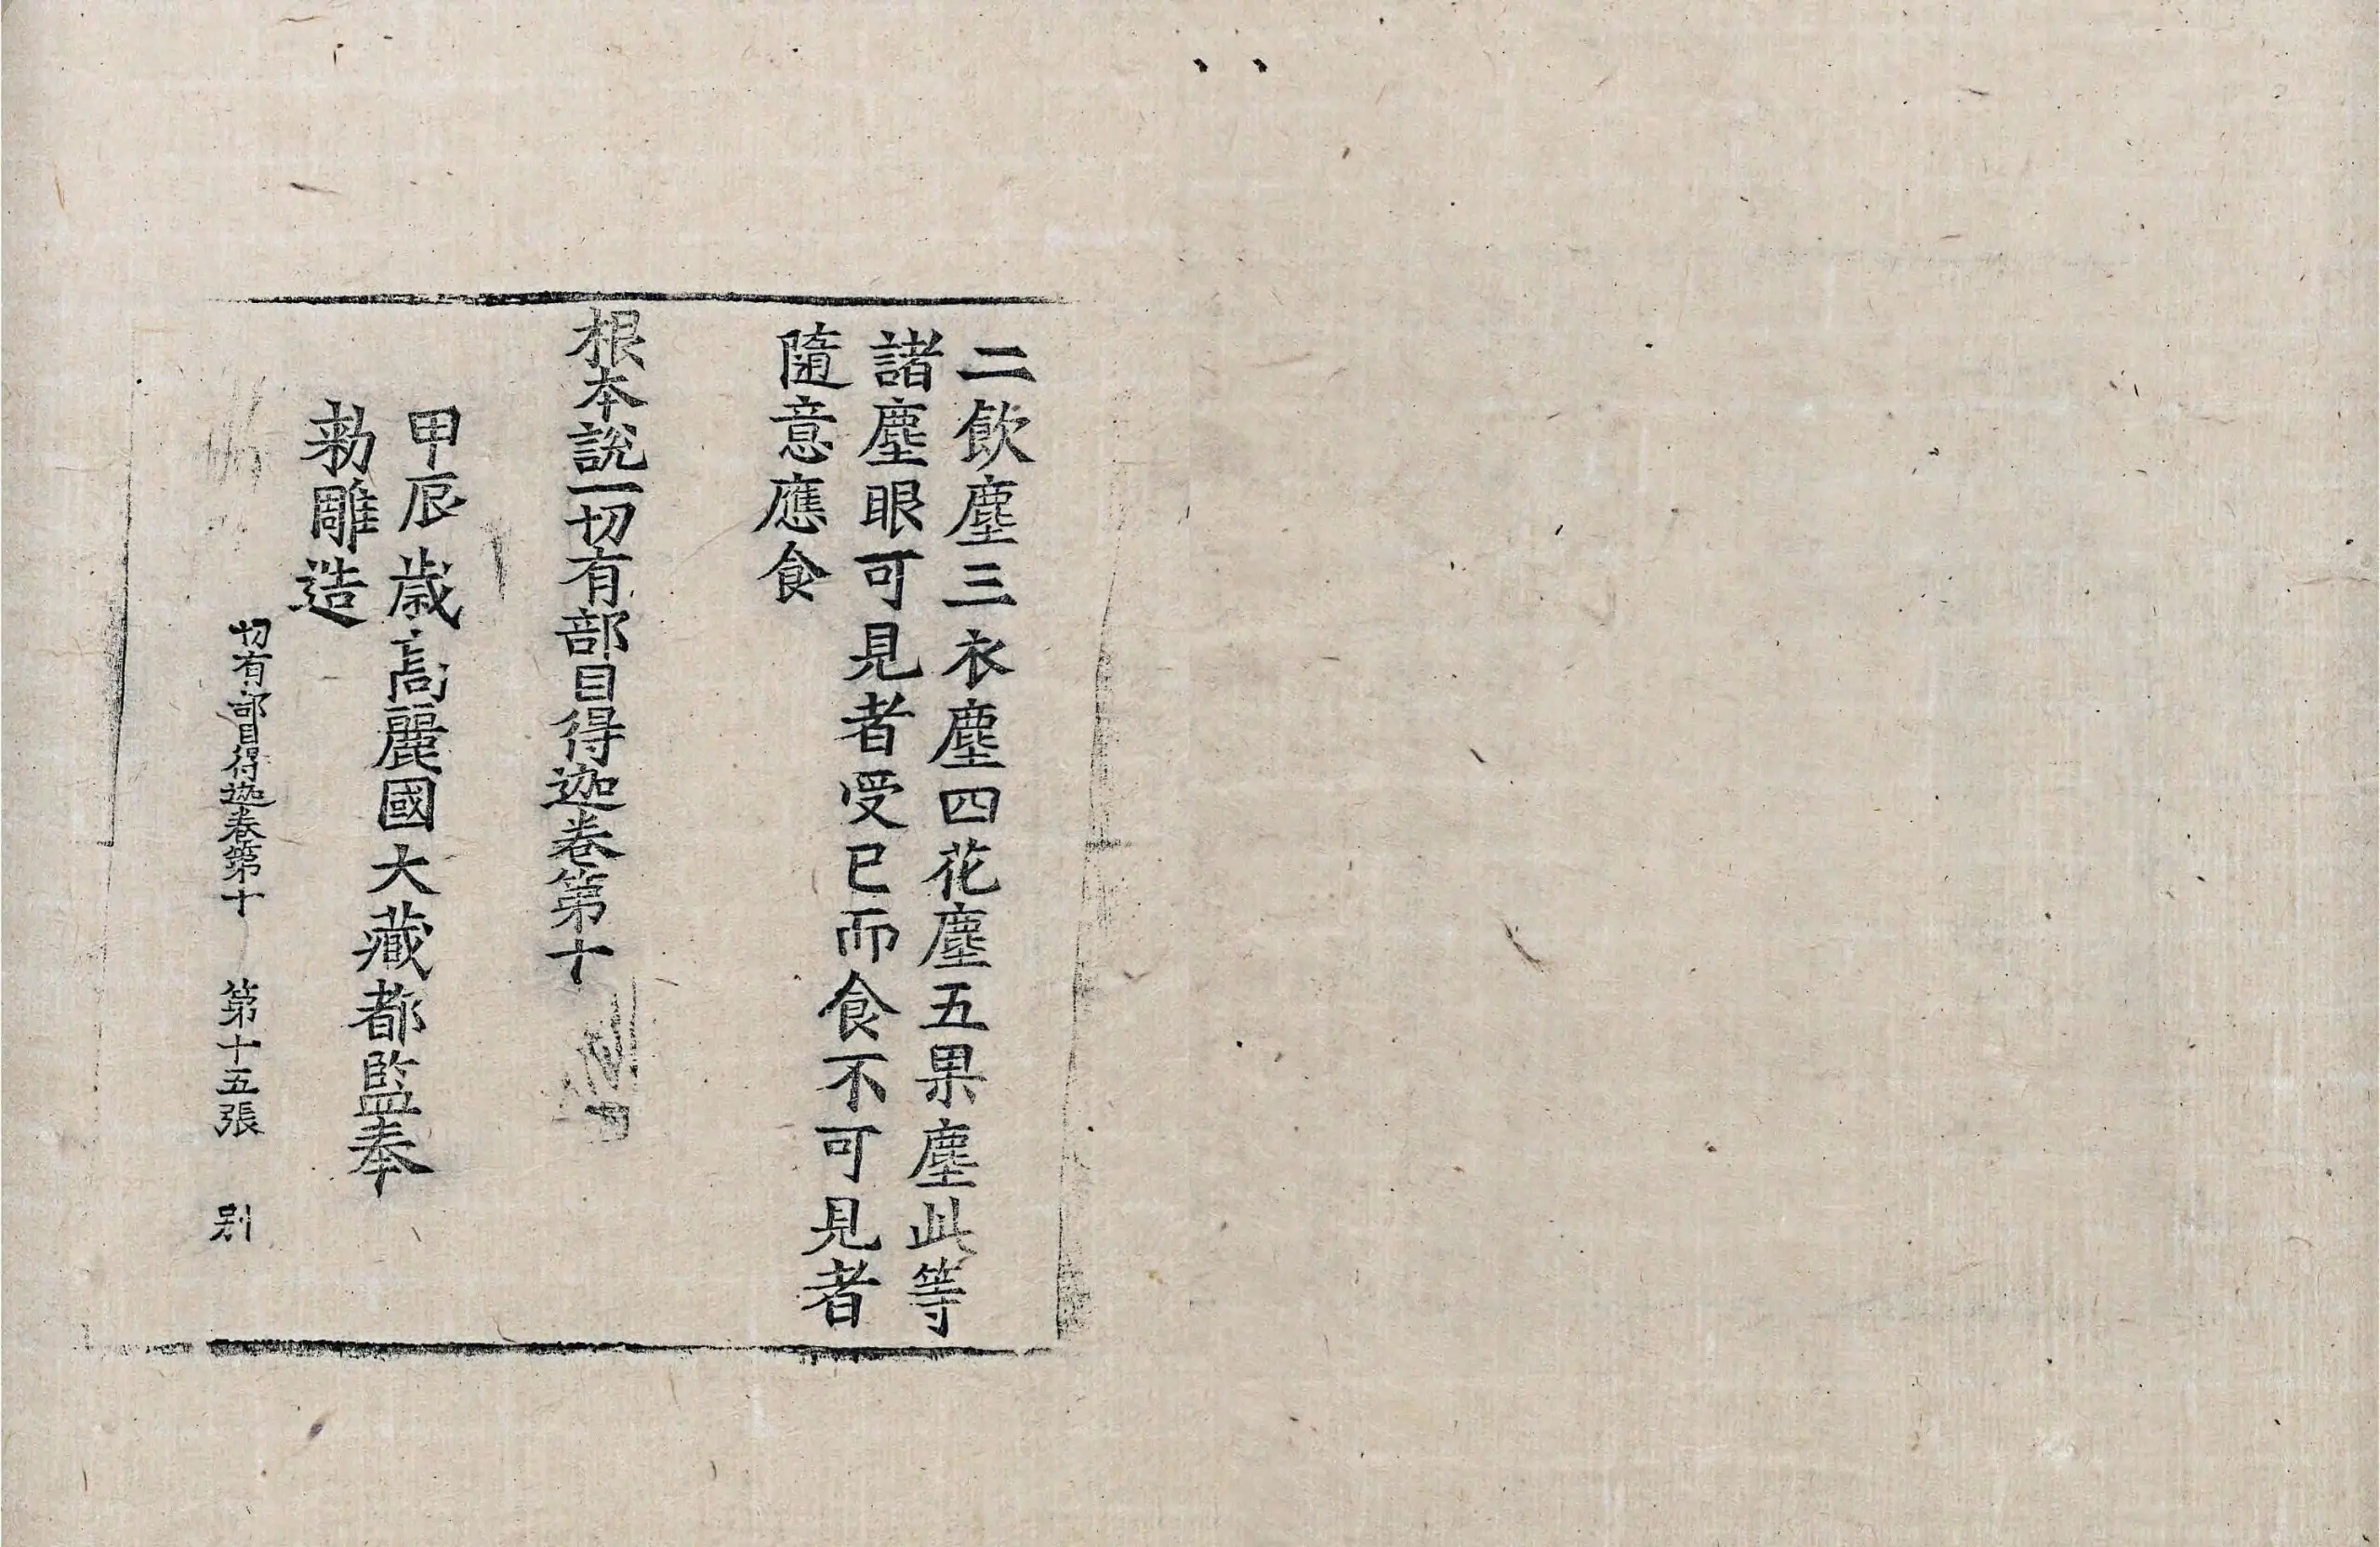 二飲塵三衣塵四花塵五果塵此等
諸塵眼可見者受已而食不可見者
隨意應食
根本說一切有部目得迦卷第十
甲辰歲高麗國大藏都監奉
勅雕造
切有部目得迦卷第十 第十五張 别